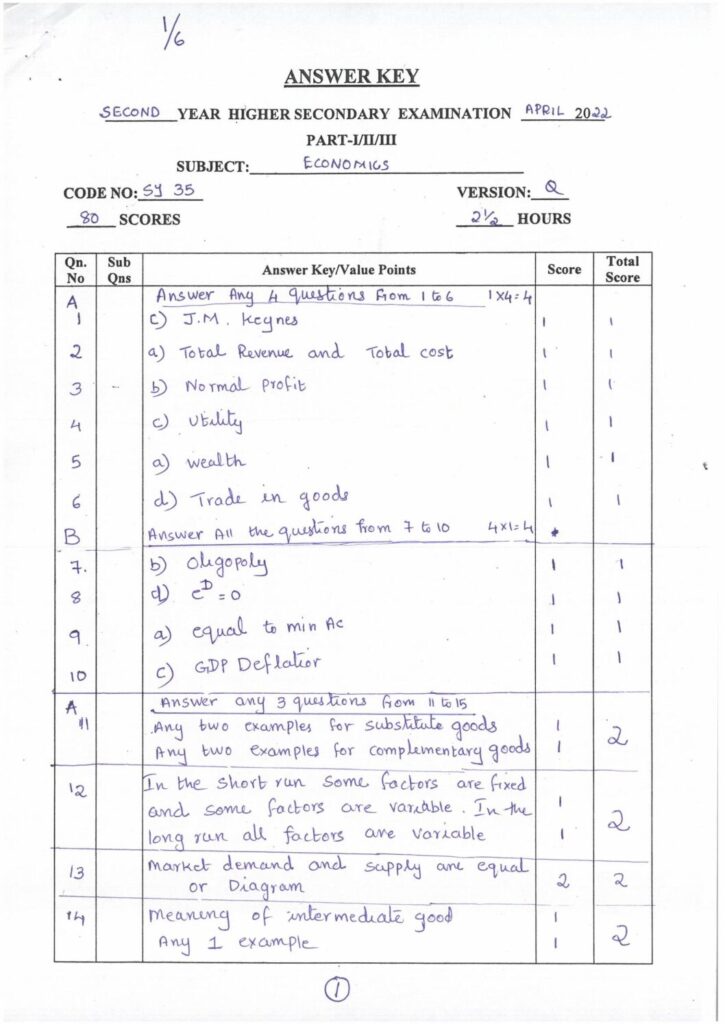 1/6
ANSWER KEY
SECOND YEAR HIGHER SECONDARY EXAMINATION APRIL 2022
PART-I/II/III
SUBJECT: ECONOMICS
CODE NO: SY 35 VERSION: Q
80 SCORES 2½ HOURS
Qn. No Sub Qns Answer Key/Value Points Score Total Score
A Answer Any 4 questions from 1 to 6 1x4=4
1 c) J.M. Keynes 1 1
2 a) Total Revenue and Total cost 1 1
3 - b) Normal Profit 1 1
4 c) Utility 1 1
5 a) wealth 1 1
6 d) Trade in goods 1 1
B Answer All the questions from 7 to 10 4x1=4
7. b) Oligopoly 1 1
8 d) eD = 0 1 1
9 a) equal to min AC 1 1
10 c) GDP Deflatior 1 1
A Answer any 3 questions from 11 to 15
11 Any two examples for substitute goods 1
Any two examples for complementary goods 1 2
12 In the short run some factors are fixed
and some factors are variable. In the 1
long run all factors are variable 1 2
13 Market demand and supply are equal
or Diagram 2 2
14 Meaning of intermediate good 1
Any 1 example 1 2
1